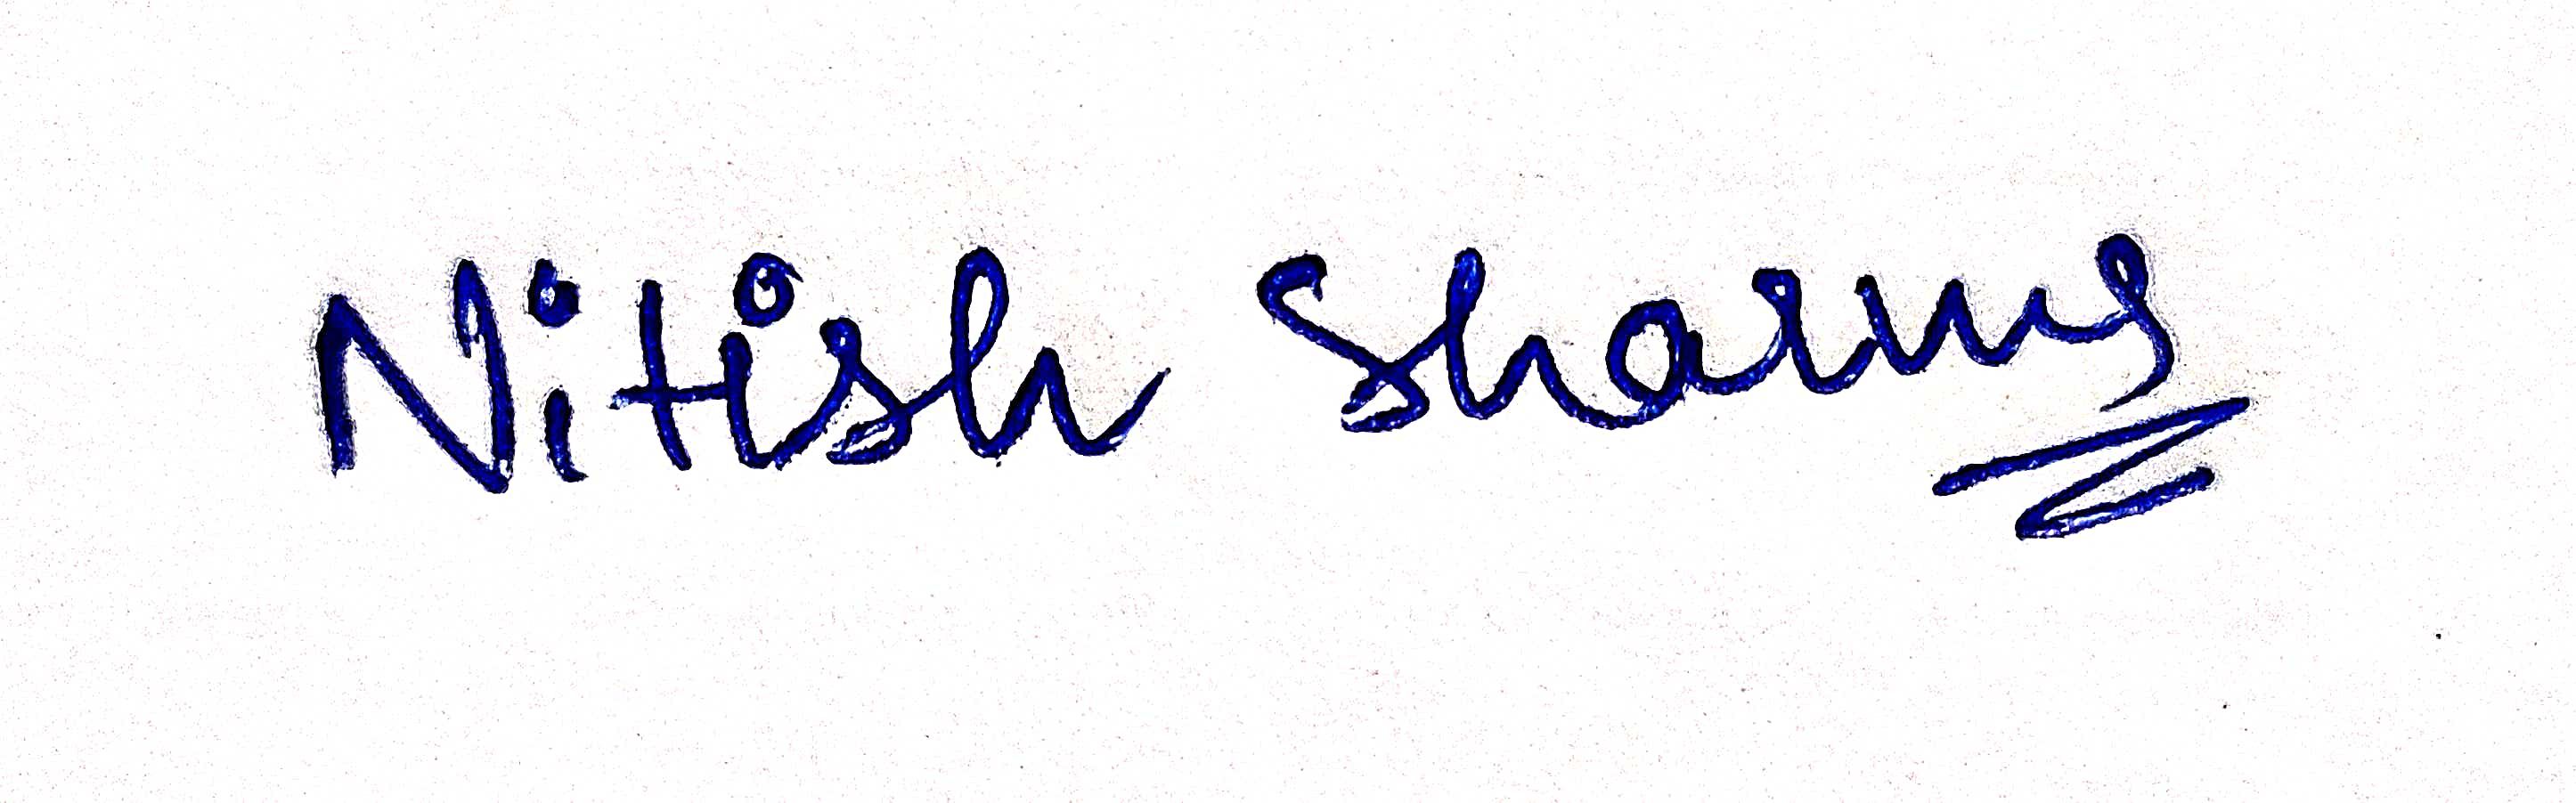 Nitish Sharma